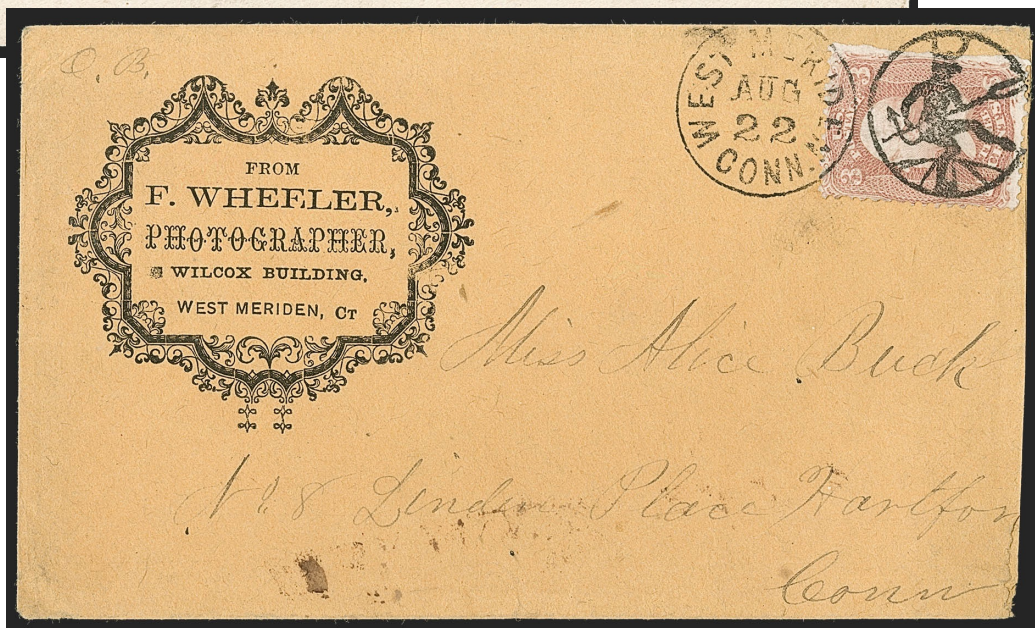 O. B.
FROM
F. WHEELER,
PHOTOGRAPHER,
WILCOX BUILDING,
WEST MERIDEN, CT
WEST MERID
AUG
22
CONN.
Miss Alice Buck
No 8 Linden Place Hartfor
Conn